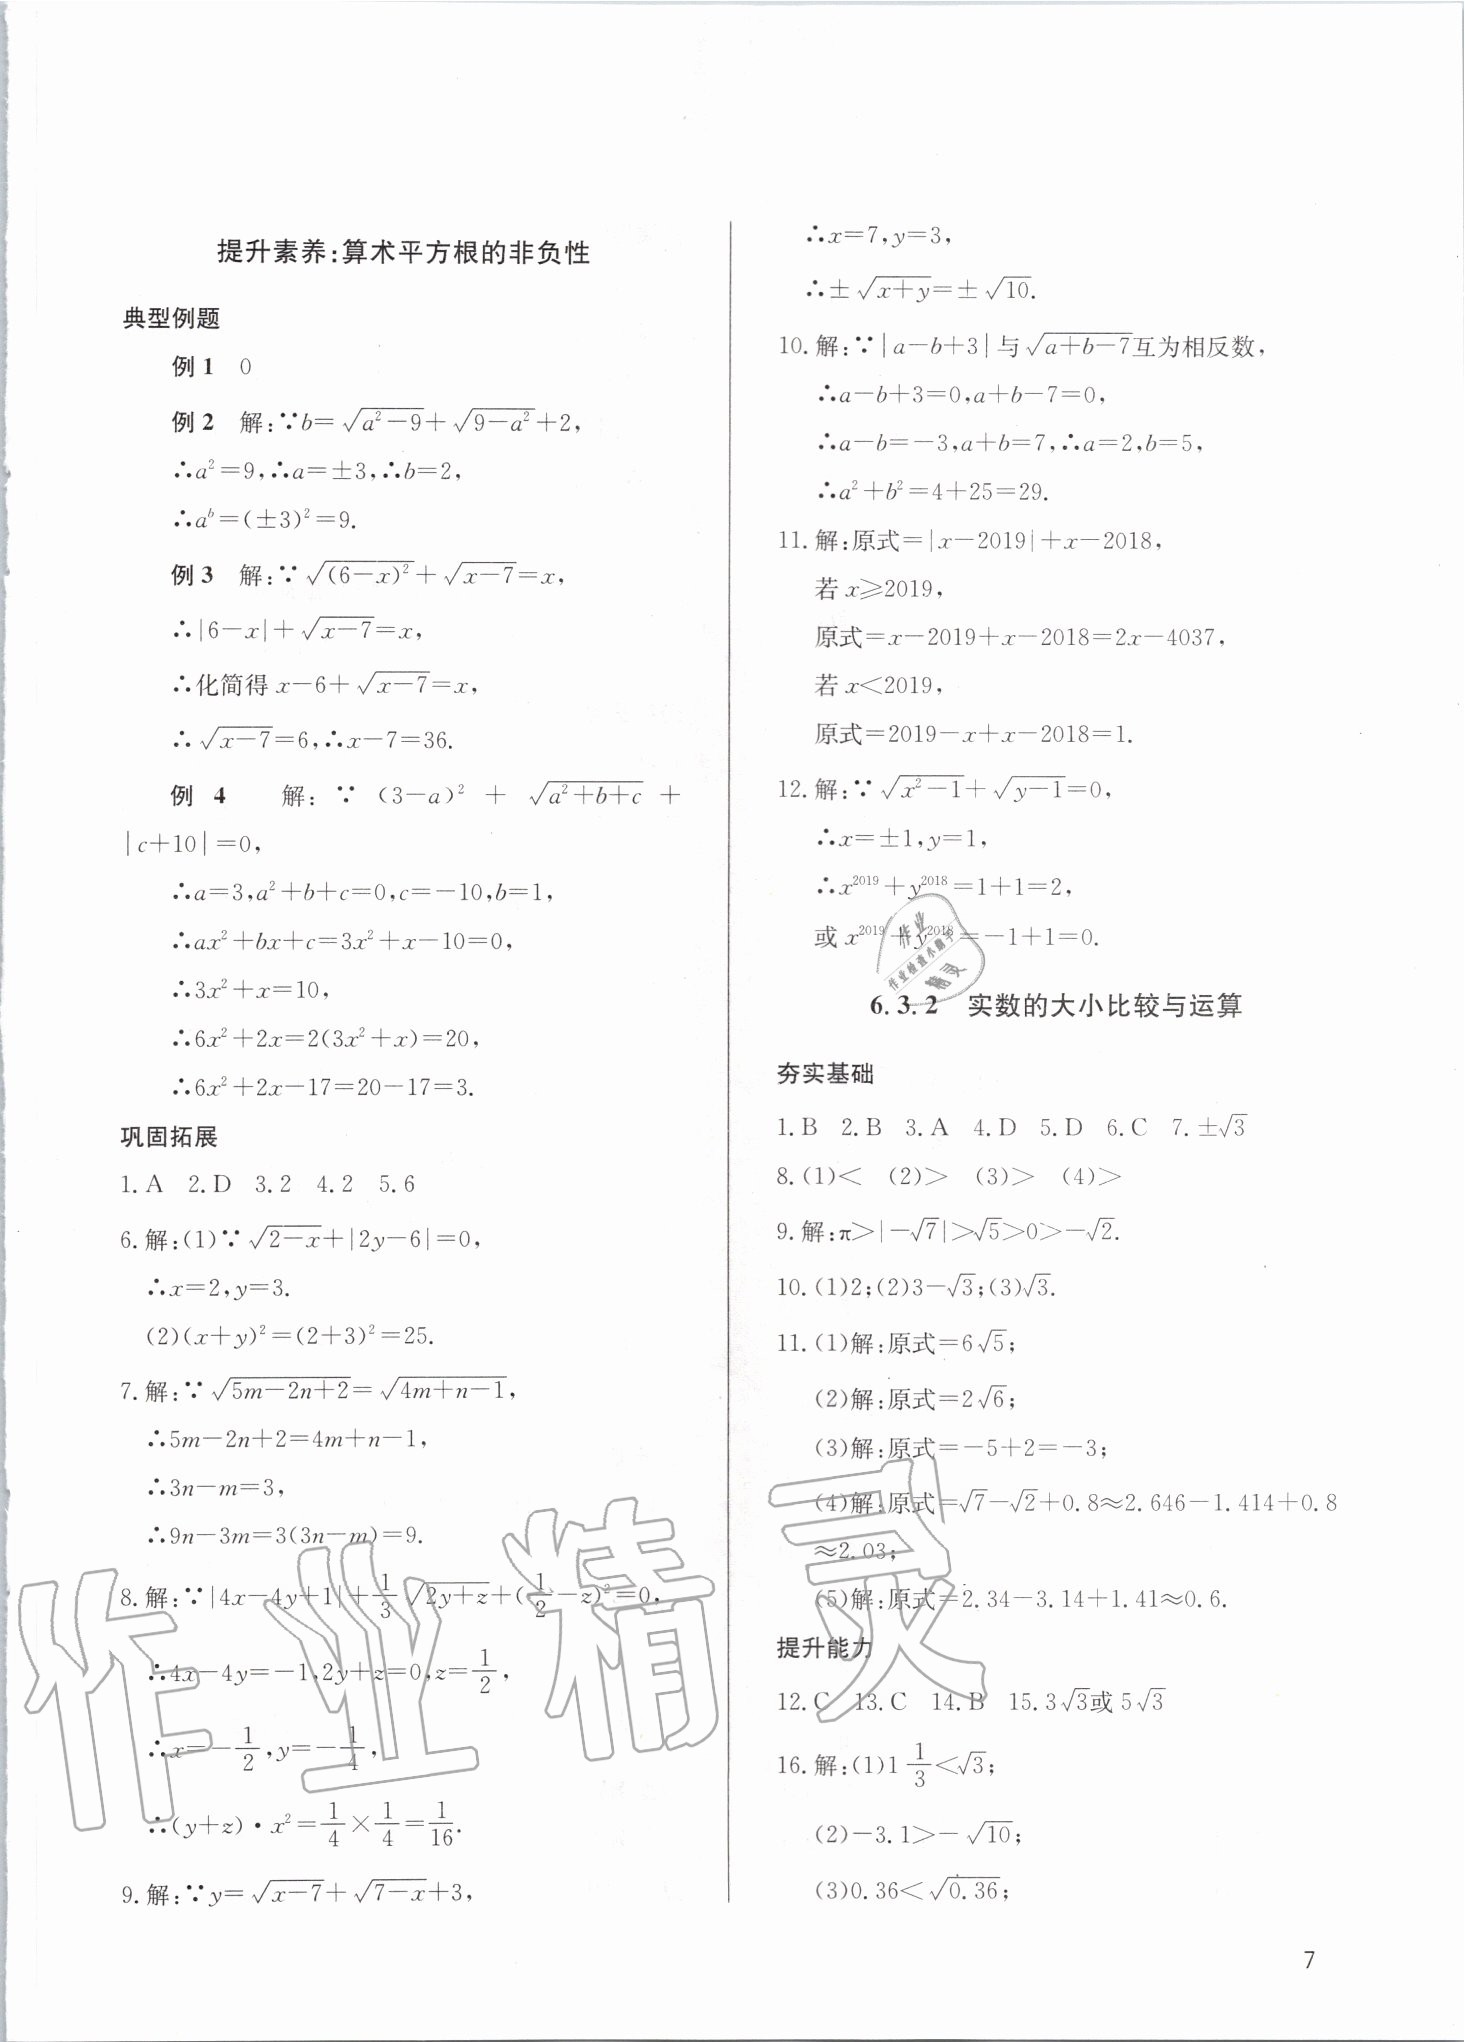 提升素养:算术平方根的非负性
典型例题
例1 0
例2 解:∵b=√(a²-9)+√(9-a²)+2,
∴a²=9,∴a=±3,∴b=2,
∴aᵇ=(±3)²=9.
例3 解:∵√((6-x)²)+√(x-7)=x,
∴|6-x|+√(x-7)=x,
∴化简得x-6+√(x-7)=x,
∴√(x-7)=6,∴x-7=36.
例 4 解: ∵ (3-a)² + √(a²+b+c) +
|c+10|=0,
∴a=3,a²+b+c=0,c=-10,b=1,
∴ax²+bx+c=3x²+x-10=0,
∴3x²+x=10,
∴6x²+2x=2(3x²+x)=20,
∴6x²+2x-17=20-17=3.
巩固拓展
1.A 2.D 3.2 4.2 5.6
6.解:(1)∵√(2-x)+|2y-6|=0,
∴x=2,y=3.
(2)(x+y)²=(2+3)²=25.
7.解:∵√(5m-2n+2)=√(4m+n-1),
∴5m-2n+2=4m+n-1,
∴3n-m=3,
∴9n-3m=3(3n-m)=9.
8.解:∵|4x-4y+1|+1/3√(2y+z)+(1/2-z)²=0,
∴4x-4y=-1,2y+z=0,z=1/2,
∴x=-1/2,y=-1/4,
∴(y+z)·x²=1/4×1/4=1/16.
9.解:∵y=√(x-7)+√(7-x)+3,
∴x=7,y=3,
∴±√(x+y)=±√10.
10.解:∵|a-b+3|与√(a+b-7)互为相反数,
∴a-b+3=0,a+b-7=0,
∴a-b=-3,a+b=7,∴a=2,b=5,
∴a²+b²=4+25=29.
11.解:原式=|x-2019|+x-2018,
若x⩾2019,
原式=x-2019+x-2018=2x-4037,
若x<2019,
原式=2019-x+x-2018=1.
12.解:∵√(x²-1)+√(y-1)=0,
∴x=±1,y=1,
∴x²⁰¹⁹+y²⁰¹⁸=1+1=2,
或x²⁰¹⁹+y²⁰¹⁸=-1+1=0.
6.3.2 实数的大小比较与运算
夯实基础
1.B 2.B 3.A 4.D 5.D 6.C 7.±√3
8.(1)< (2)> (3)> (4)>
9.解:π>|-√7|>√5>0>-√2.
10.(1)2;(2)3-√3;(3)√3.
11.(1)解:原式=6√5;
(2)解:原式=2√6;
(3)解:原式=-5+2=-3;
(4)解:原式=√7-√2+0.8≈2.646-1.414+0.8
≈2.03;
(5)解:原式=2.34-3.14+1.41≈0.6.
提升能力
12.C 13.C 14.B 15.3√3或5√3
16.解:(1)1 1/3<√3;
(2)-3.1>-√10;
(3)0.36<√0.36;
7
作业
作业检查小助手
精灵
作业精灵